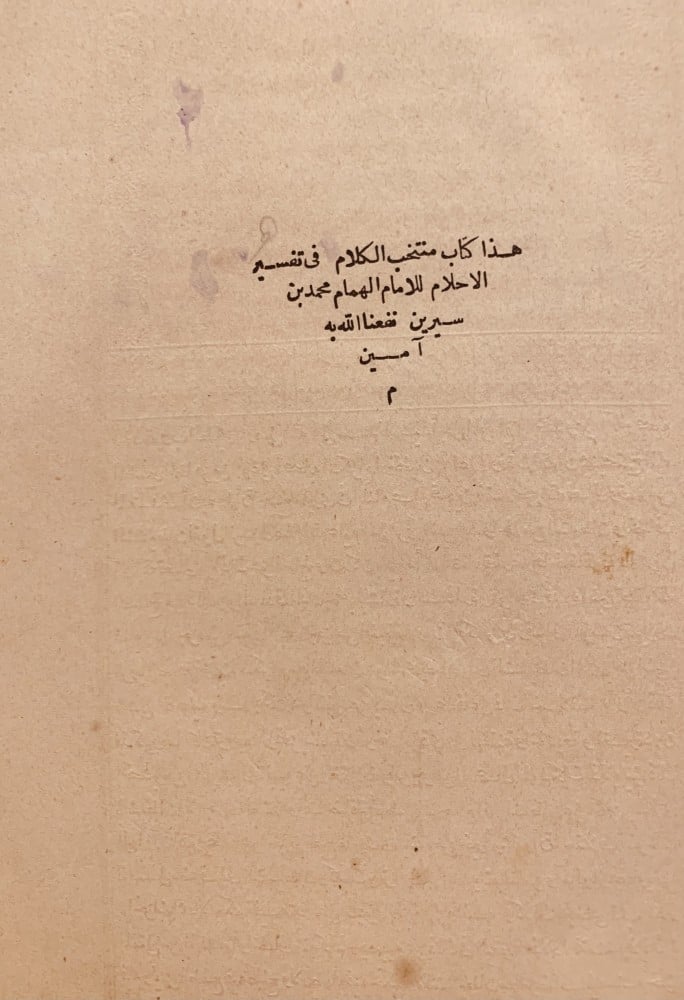 هذا كتاب منتخب الكلام فى تفسير
الاحلام للامام الهمام محمد بن
سيرين نفعنا الله به
آمين
م